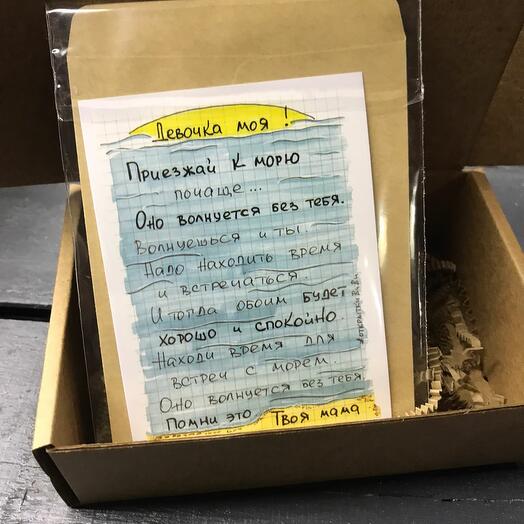 Девочка моя!
Приезжай к морю
почаще...
Оно волнуется без тебя.
Волнуешься и ты.
Надо находить время
и встречаться.
И тогда обоим будет
хорошо и спокойно.
Находи время для
встреч с морем.
Оно волнуется без тебя.
Помни это Твоя мама